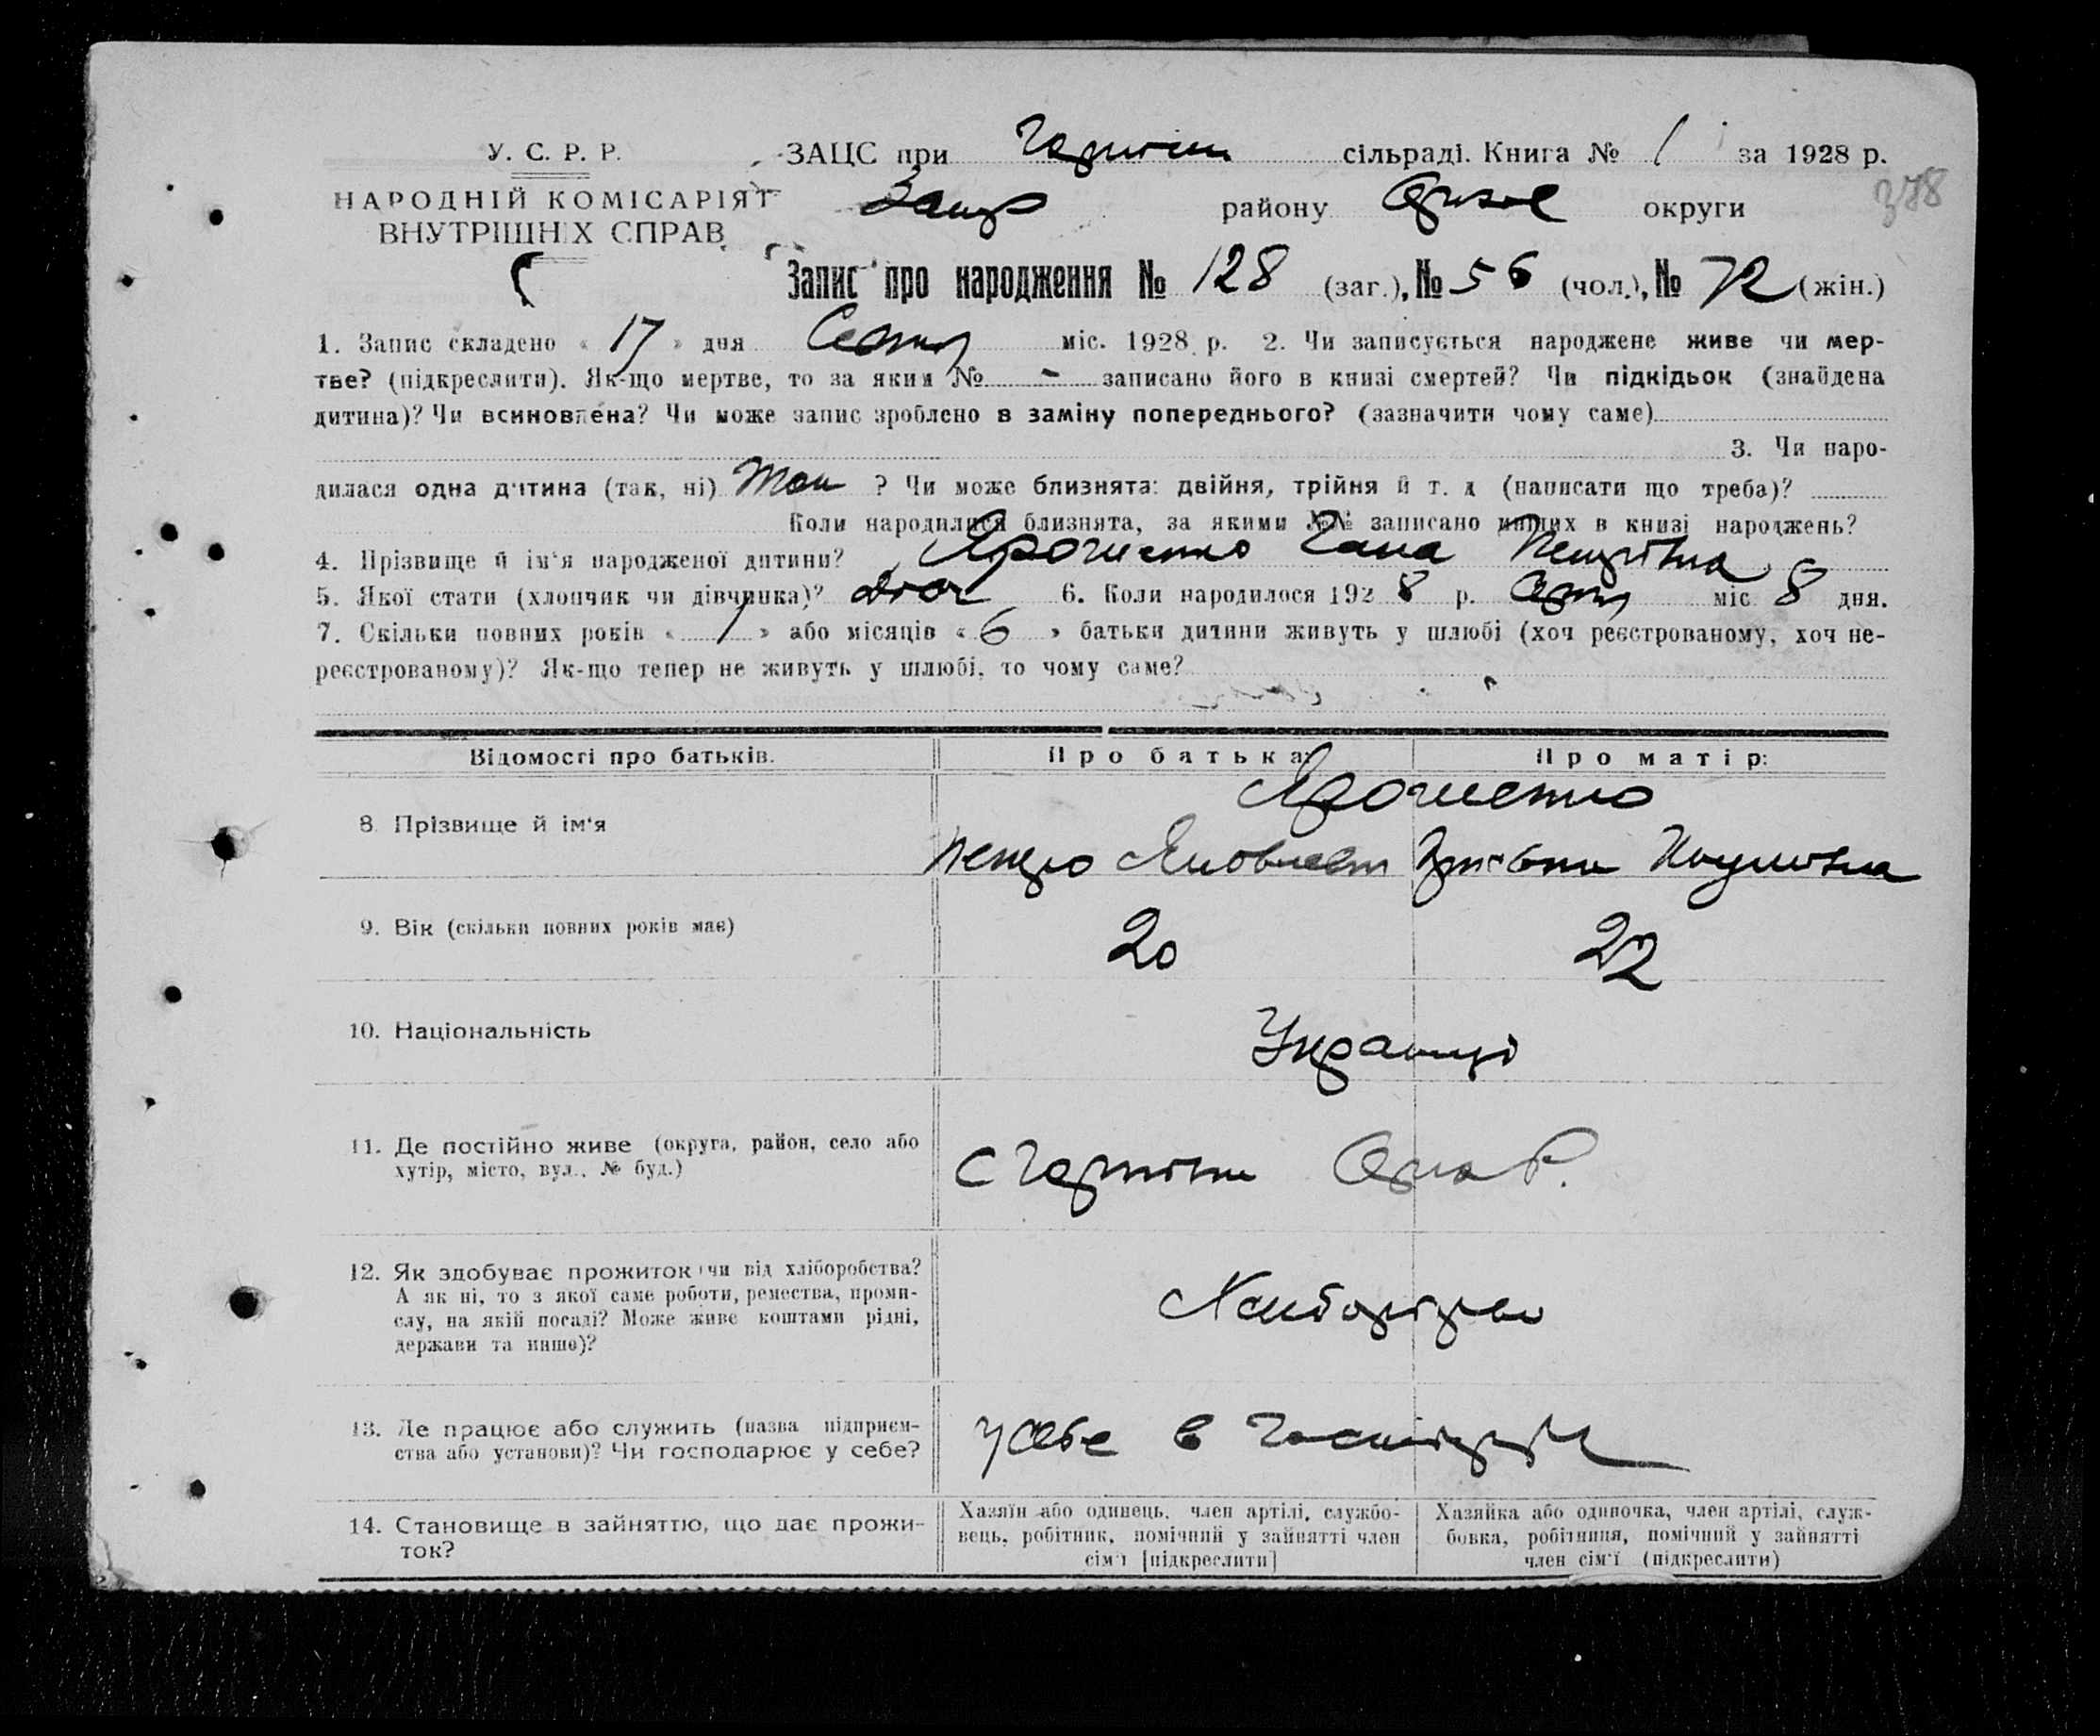 У. С. Р. Р.
НАРОДНІЙ КОМІСАРІЯТ
ВНУТРІШНІХ СПРАВ
ЗАЦС при сільраді. Книга № 1 за 1928 р.
району округи
378
Запис про народження № 128 (заг.), № 56 (чол.), № 72 (жін.)
1. Запис складено « 17 » дня міс. 1928 р. 2. Чи записується народжене живе чи мер-
тве? (підкреслити). Як-що мертве, то за яким № - записано його в книзі смертей? Чи підкідьок (знайдена
дитина)? Чи всиновлена? Чи може запис зроблено в заміну попереднього? (зазначити чому саме)
3. Чи наро-
дилася одна дитина (так, ні) Так ? Чи може близнята: двійня, трійня й т. д (написати що треба)?
Коли народилися близнята, за якими №№ записано инших в книзі народжень?
4. Прізвище й ім'я народженої дитини? Ярошенко Гана Петрівна
5. Якої стати (хлопчик чи дівчинка)? Дівч 6. Коли народилося 1928 р. міс 8 дня.
7. Скільки повних років « 1 » або місяців « 6 » батьки дитини живуть у шлюбі (хоч реєстрованому, хоч не-
реєстрованому)? Як-що тепер не живуть у шлюбі, то чому саме?
Відомості про батьків. Про батька: Про матір:
8. Прізвище й ім'я Ярошенко
Петро Яковлев
9. Вік (скільки повних років має) 20 22
10. Національність Украинці
11. Де постійно живе (округа, район, село або
хутір, місто, вул., № буд.) с
12. Як здобуває прожиток (чи від хліборобства?
А як ні, то з якої саме роботи, ремества, проми-
слу, на якій посаді? Може живе коштами рідні,
держави та инше)?
13. Де працює або служить (назва підприєм-
ства або установи)? Чи господарює у себе? У себе в
14. Становище в зайняттю, що дає прожи-
ток?
Хазяїн або одинець, член артілі, службо-
вець, робітник, помічний у зайнятті член
сім'ї [підкреслити]
Хазяйка або одиночка, член артілі, служ-
бовка, робітниця, помічний у зайнятті
член сім'ї (підкреслити)